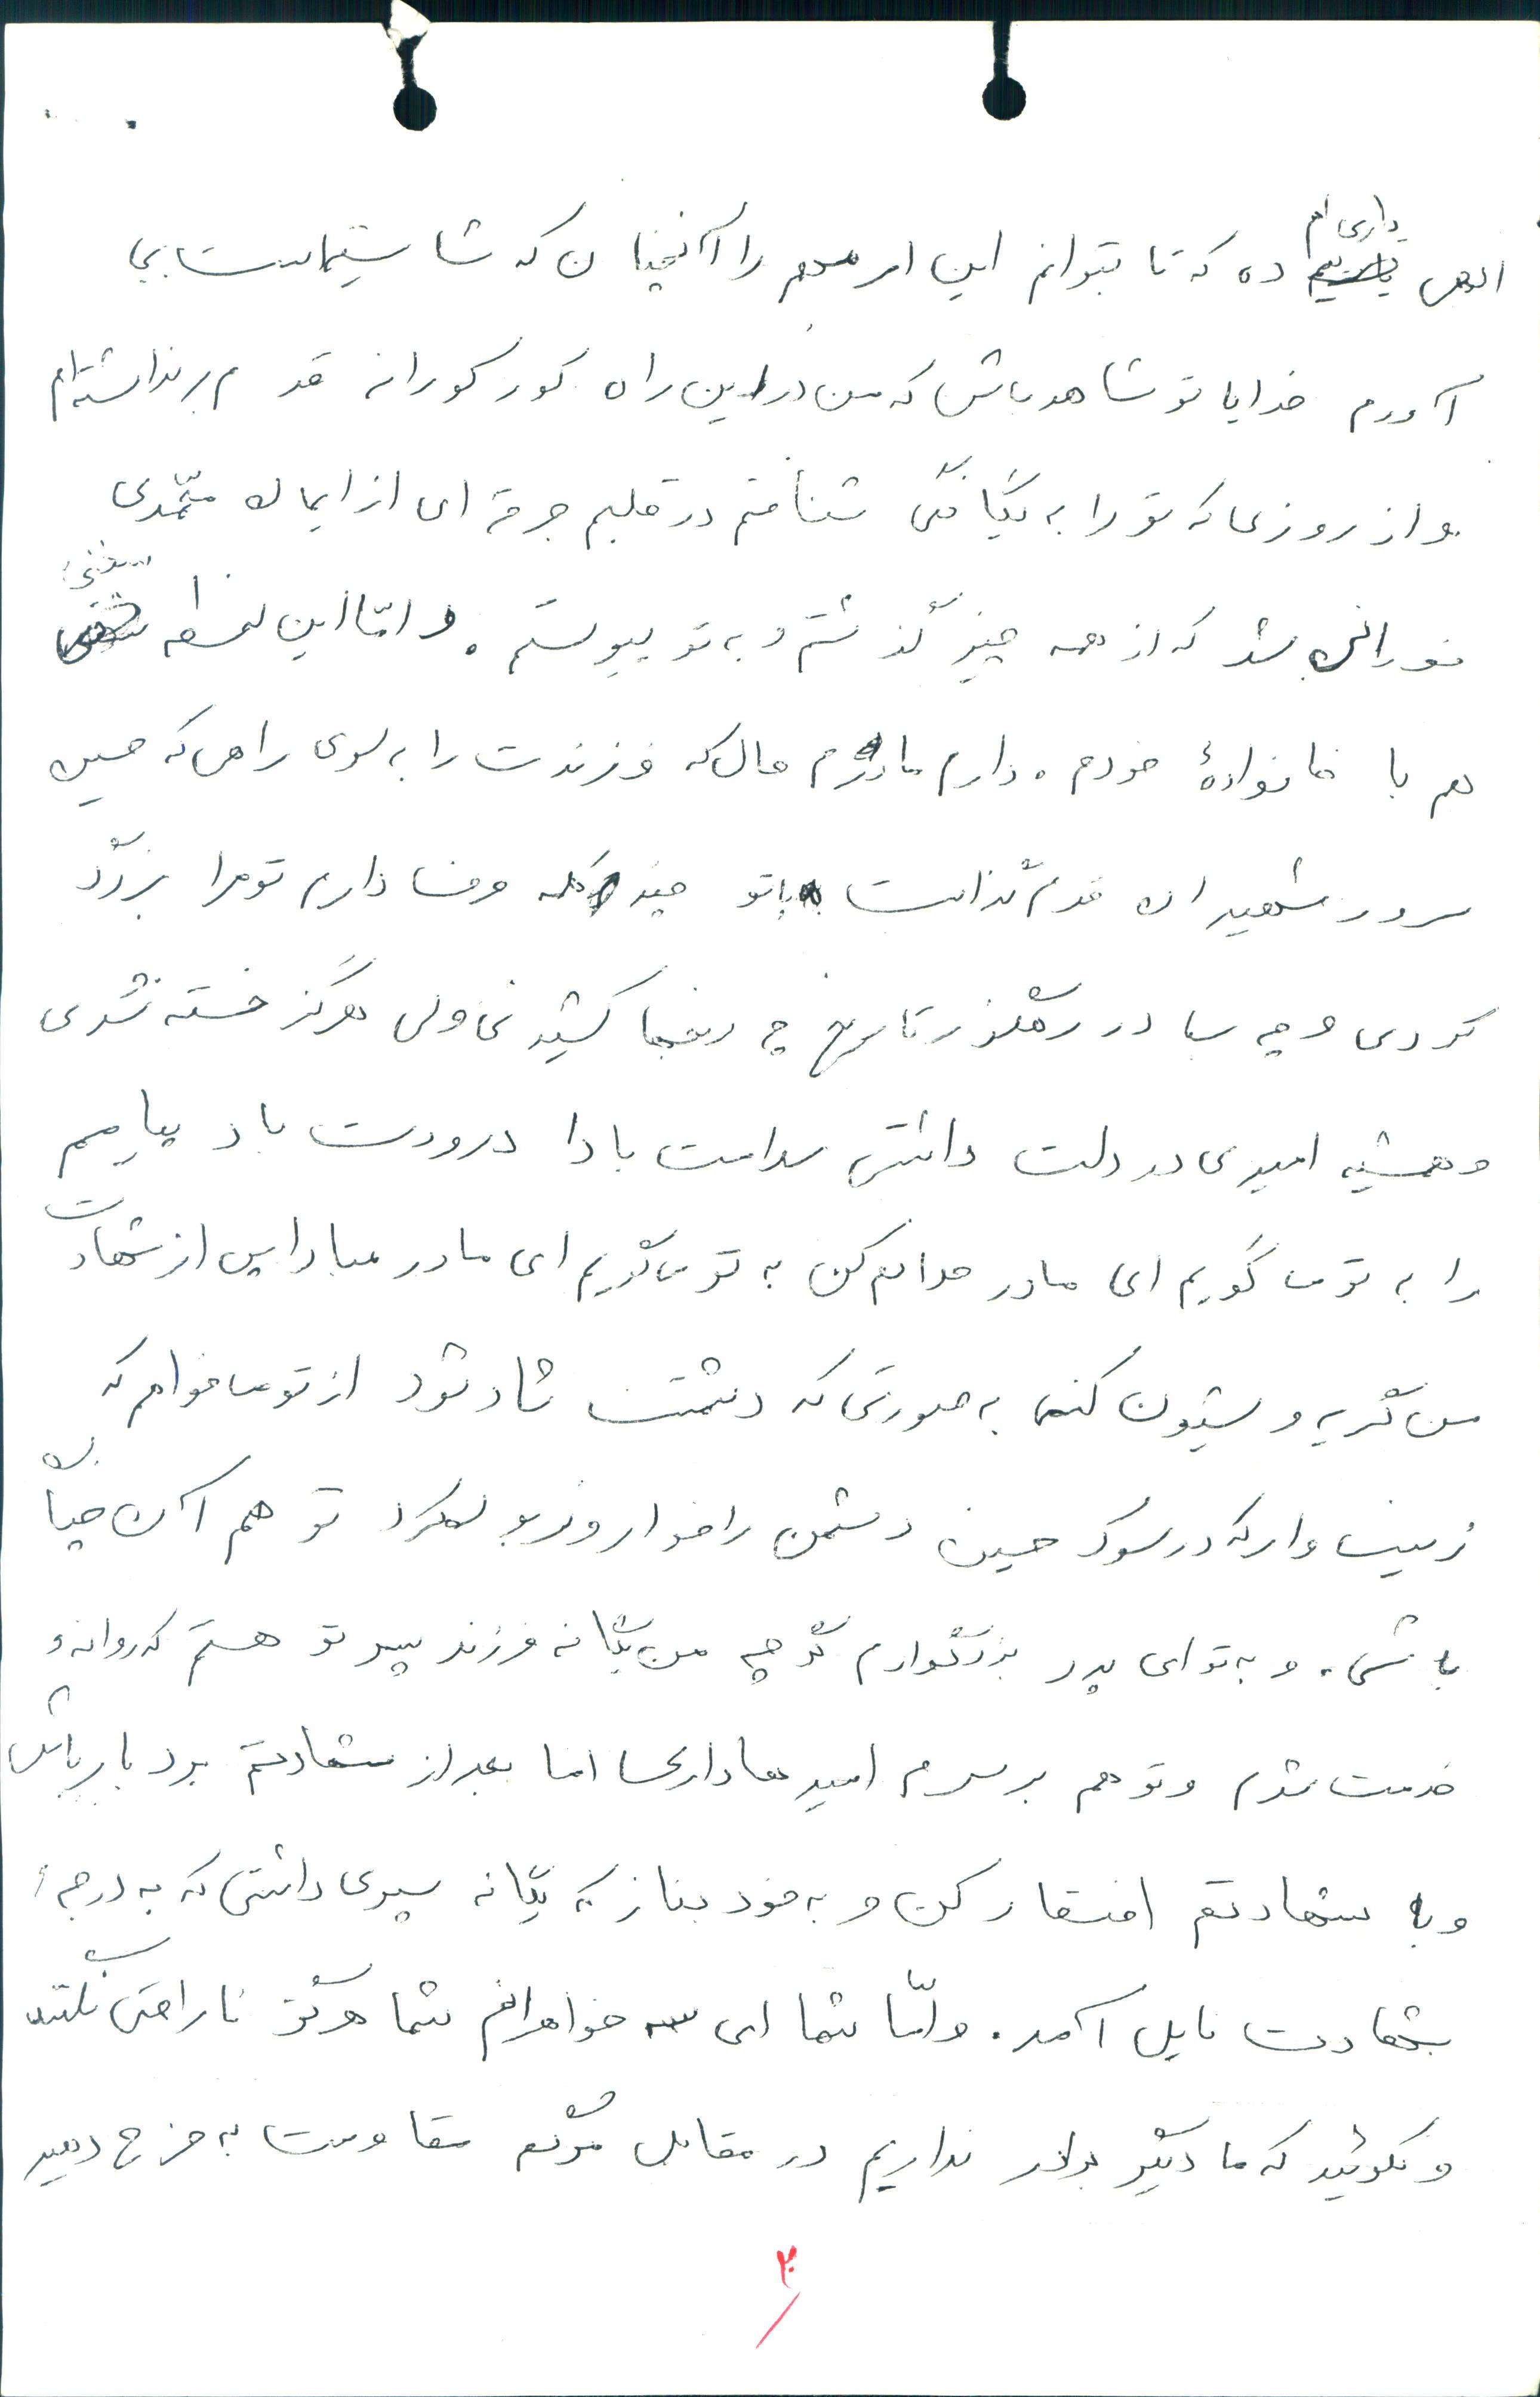 الهی یاریم ده که تا بتوانم این امر مهم را آنچنان که شایسته است بجا
آورم خدایا تو شاهد باش که من در این راه کورکورانه قدم برنداشته‌ام
و از روزی که تو را به یگانگی شناختم در قلبم جرقه ای از ایمان محمدی
نورانی شد که از همه چیز گذشتم و به تو پیوستم. و امّا این لحظه سخنی
هم با خانوادهٔ خودم. دارم مادرم حال که فرزندت را به سوی راهی که حسین
سرور شهیدان قدم گذاست با تو چند کلمه عرضا دارم تو مرا بزرگ
کردی و چه بسا در رهگذر تاریخ چه رنجها کشیدی ولی هرگز خسته نشدی
و همشیه امیدی در دلت داشتی سلامت بادا درودت باد پیامم
را به تو می گویم ای مادر حلالم کن به تو می گویم ای مادر مبادا پس از شهادت
من گریه و شیون کنی به صورتی که دشمنت شاد شود از تو می خواهم که
زینب وار که در سوگ حسین دشمن را خوار و زبون کرد تو هم آن چنان
باشی. و به تو ای پدر بزرگوارم گرچه من یگانه فرزند پسر تو هستم که روانهٔ
خدمت شدم و تو هم بر سرم امیدها داری اما بعد از شهادتم بردبار باش
و با شهادتم افتخار کن و به خود بناز که یگانه پسری داشتی که به درجهٔ
شهادت نایل آمد. و امّا شما ای سه خواهرانم شما هرگز ناراحتی نکنید
و نگوئید که ما دیگر برادر نداریم در مقابل مرگم مقاومت به خرج دهید
۲